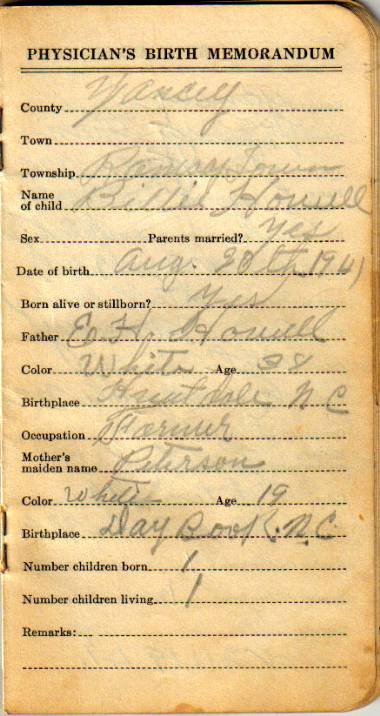 PHYSICIAN'S BIRTH MEMORANDUM
County Yancey
Town
Township
Name
of child Billie Howell
Sex Parents married? Yes
Date of birth Aug. 20th, 1941
Born alive or stillborn? Yes
Father E. H. Howell
Color White Age 38
Birthplace Huntdale N C
Occupation Farmer
Mother's
maiden name Peterson
Color White Age 19
Birthplace Day Book. N.C.
Number children born 1
Number children living 1
Remarks: